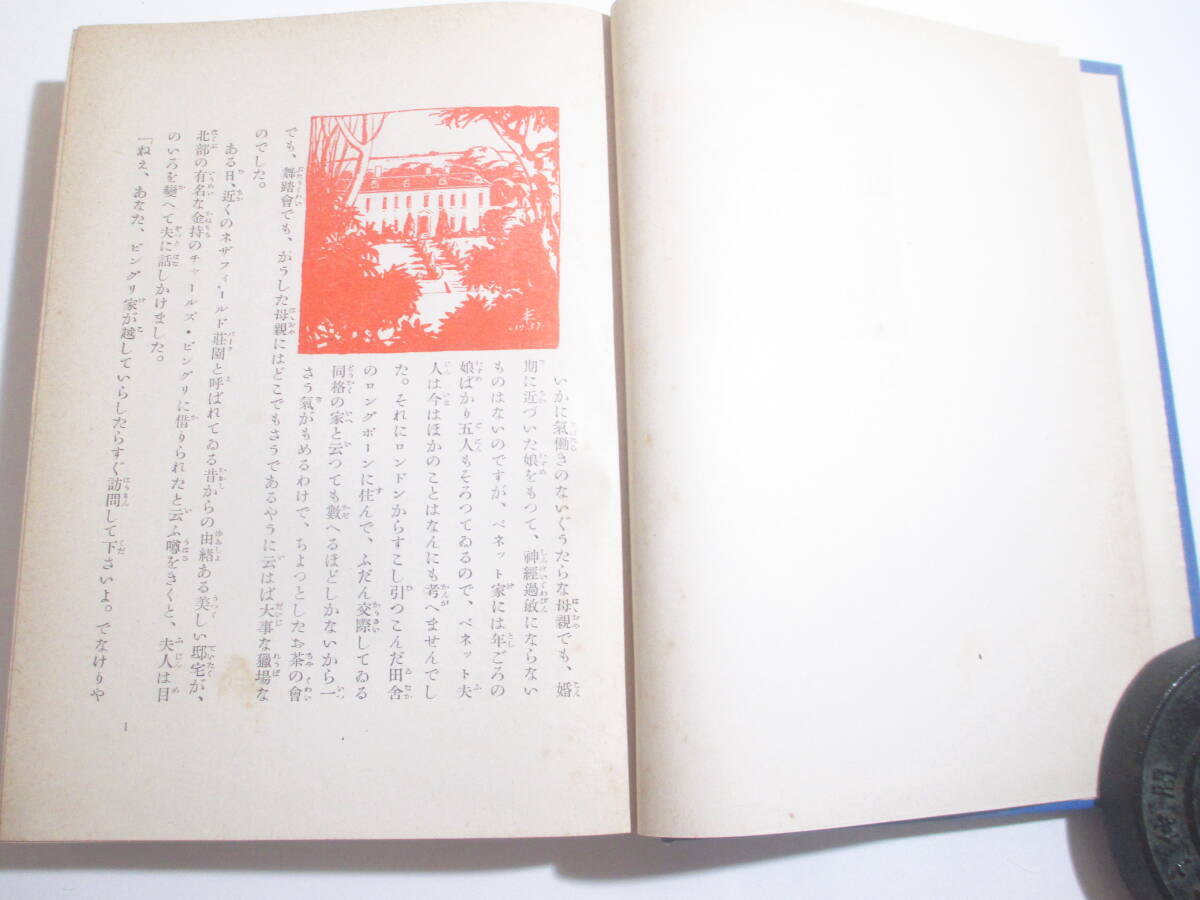 いかに氣働きのないぐうたらな母親でも、婚
期に近づいた娘をもつて、神經過敏にならない
ものはないのですが、ベネット家には年ごろの
娘ばかり五人もそろつてゐるので、ベネット夫
人は今はほかのことはなんにも考へませんでし
た。それにロンドンからすこし引つこんだ田舍
のロングボーンに住んで、ふだん交際してゐる
同格の家と云つても數へるほどしかないから一
さう氣がもめるわけで、ちよつとしたお茶の會
でも、舞踏會でも、かうした母親にはどこでもさうであるやうに云はば大事な獵場な
のでした。
ある日、近くのネザフィールド莊園と呼ばれてゐる昔からの由緒ある美しい邸宅が、
北部の有名な金持のチャールズ・ビングリに借りられたと云ふ噂をきくと、夫人は目
のいろを變へて夫に話しかけました。
「ねえ、あなた、ビングリ家が越していらしたらすぐ訪問して下さいよ。でなけりや
1